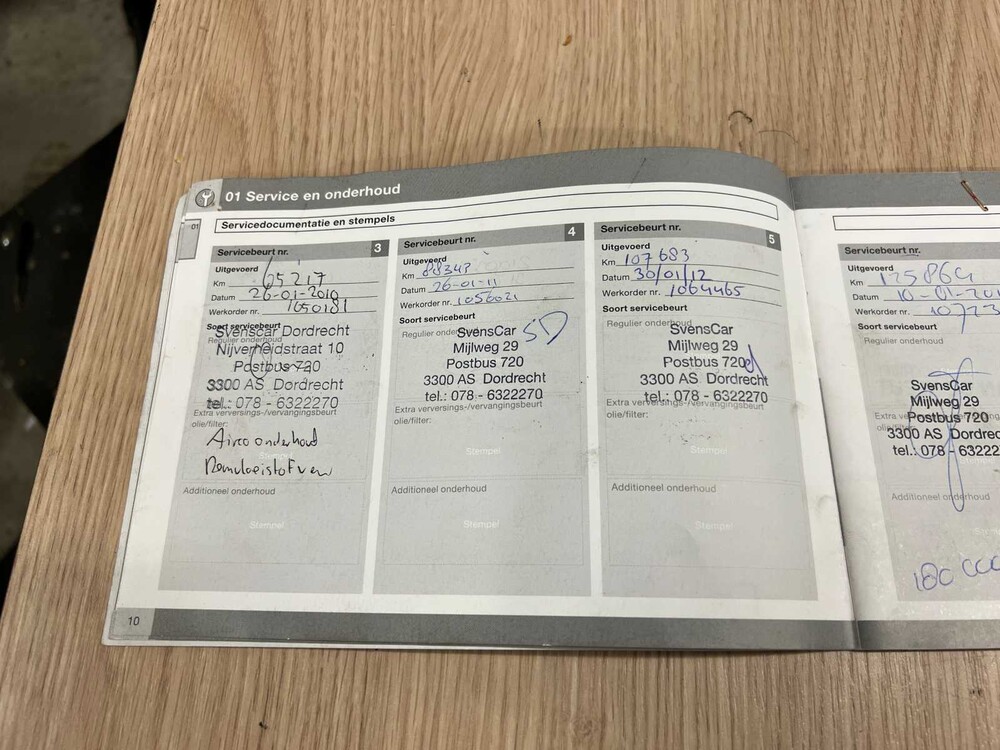 01 Service en onderhoud
01
Servicedocumentatie en stempels
Servicebeurt nr. 3
Uitgevoerd
Km 65217
Datum 26-01-2010
Werkorder nr. 1050181
Soort servicebeurt
Regulier onderhoud
Svenscar Dordrecht
Nijverheidstraat 10
Postbus 720
3300 AS Dordrecht
tel.: 078 - 6322270
Extra verversings-/vervangingsbeurt
olie/filter:
Airco onderhoud
Remvloeistof verv
Stempel
Additioneel onderhoud
Stempel
Servicebeurt nr. 4
Uitgevoerd
Km
Datum 26-01-11
Werkorder nr. 1056021
Soort servicebeurt
Regulier onderhoud
SD
SvensCar
Mijlweg 29
Postbus 720
3300 AS Dordrecht
tel.: 078 - 6322270
Extra verversings-/vervangingsbeurt
olie/filter:
Stempel
Additioneel onderhoud
Stempel
Servicebeurt nr. 5
Uitgevoerd
Km 107683
Datum 30/01/12
Werkorder nr. 1064465
Soort servicebeurt
Regulier onderhoud
SvensCar
Mijlweg 29
Postbus 720
3300 AS Dordrecht
tel.: 078 - 6322270
Extra verversings-/vervangingsbeurt
olie/filter:
Stempel
Additioneel onderhoud
Stempel
Servicebeurt nr.
Uitgevoerd
Km 125864
Datum 10-01-201
Werkorder nr. 10723
Soort servicebeurt
Regulier onderhoud
SvensCar
Mijlweg 29
Postbus 720
3300 AS Dordrec
tel.: 078 - 6322
Extra
olie/filter:
Additioneel onderhoud
10